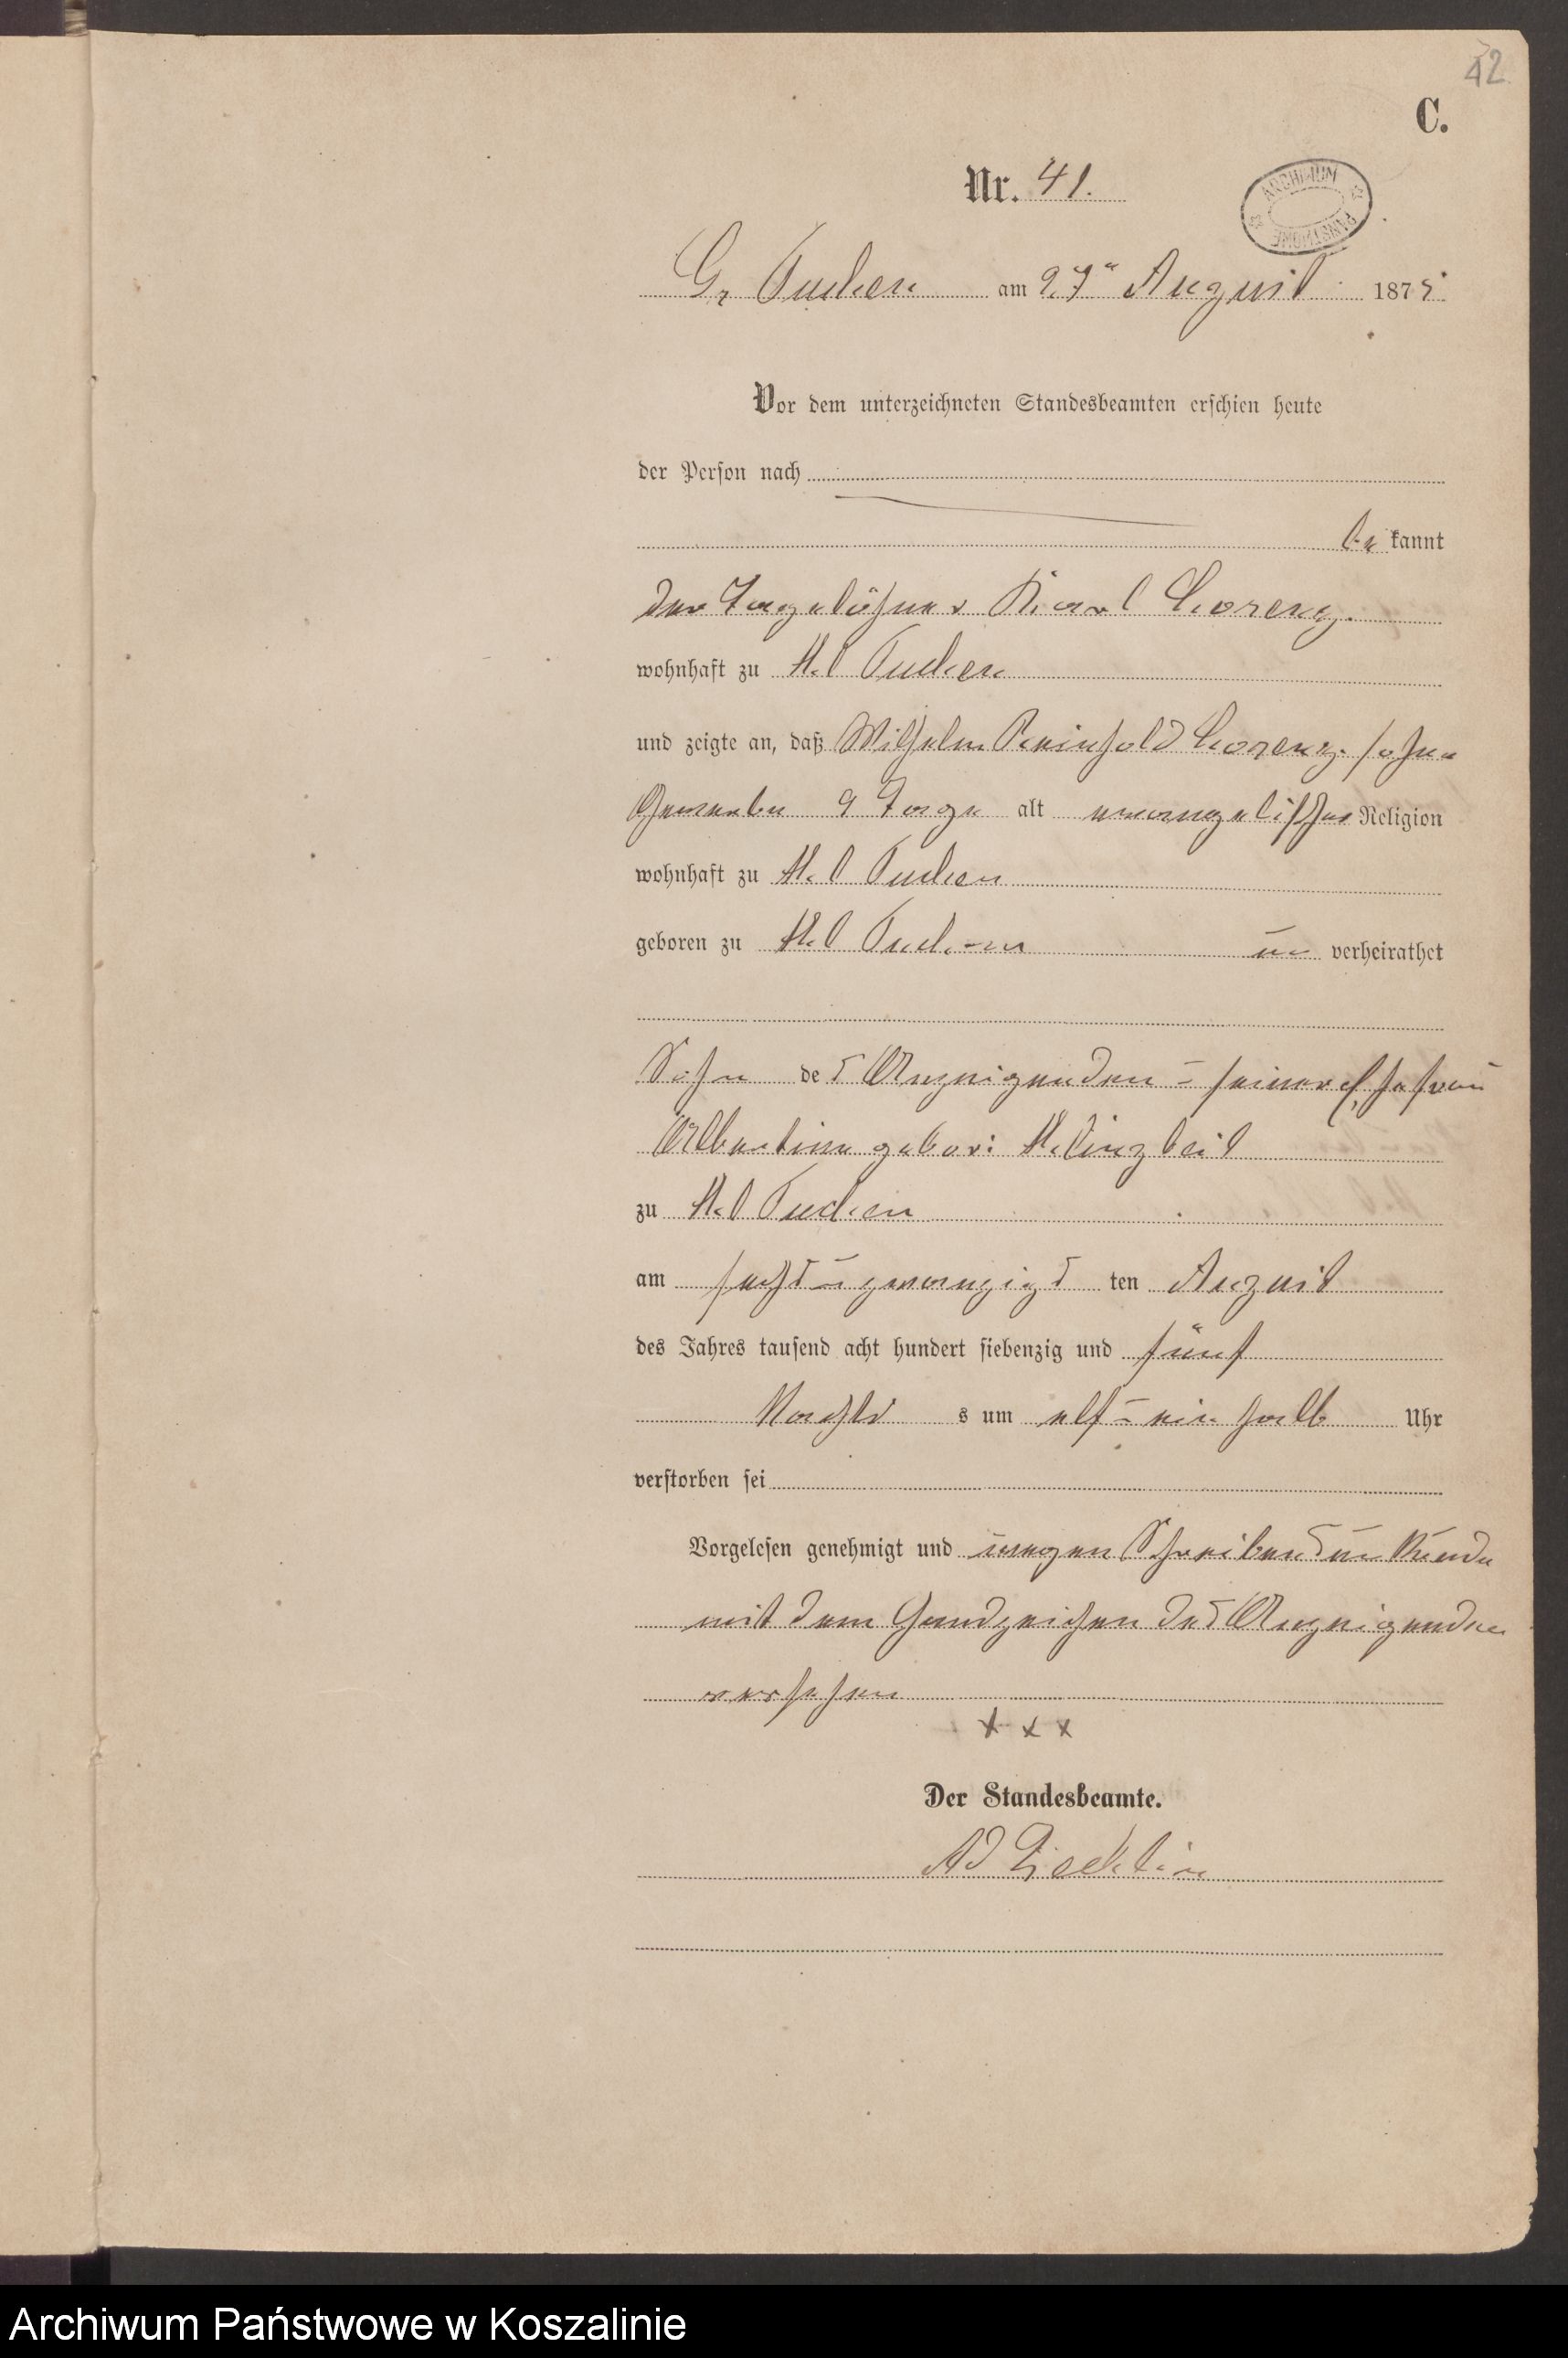 42
C.
Nr. 41.
ARCHIWUM PAŃSTWOWE
Gr Tuchen am 27n August 1875
Vor dem unterzeichneten Standesbeamten erschien heute
der Person nach
be kannt
der Tagelöhner Karl Lorenz
wohnhaft zu Kl Tuchen
und zeigte an, daß Wilhelm Reinhold Lorenz ohne
Gewerbe 9 Tage alt evangelischer Religion
wohnhaft zu Kl Tuchen
geboren zu Kl Tuchen un verheirathet
Sohn des Anzeigenden u seiner Ehefrau
Albertine gebor: Klingbeil
zu Kl Tuchen
am sechs u zwanzigs ten August
des Jahres tausend acht hundert siebenzig und fünf
Nachts s um elf u ein halb Uhr
verstorben sei
Vorgelesen genehmigt und wegen Schreibens un kunde
mit dem Handzeichen des Anzeigenden
versehen
x x x
Der Standesbeamte.
Archiwum Państwowe w Koszalinie